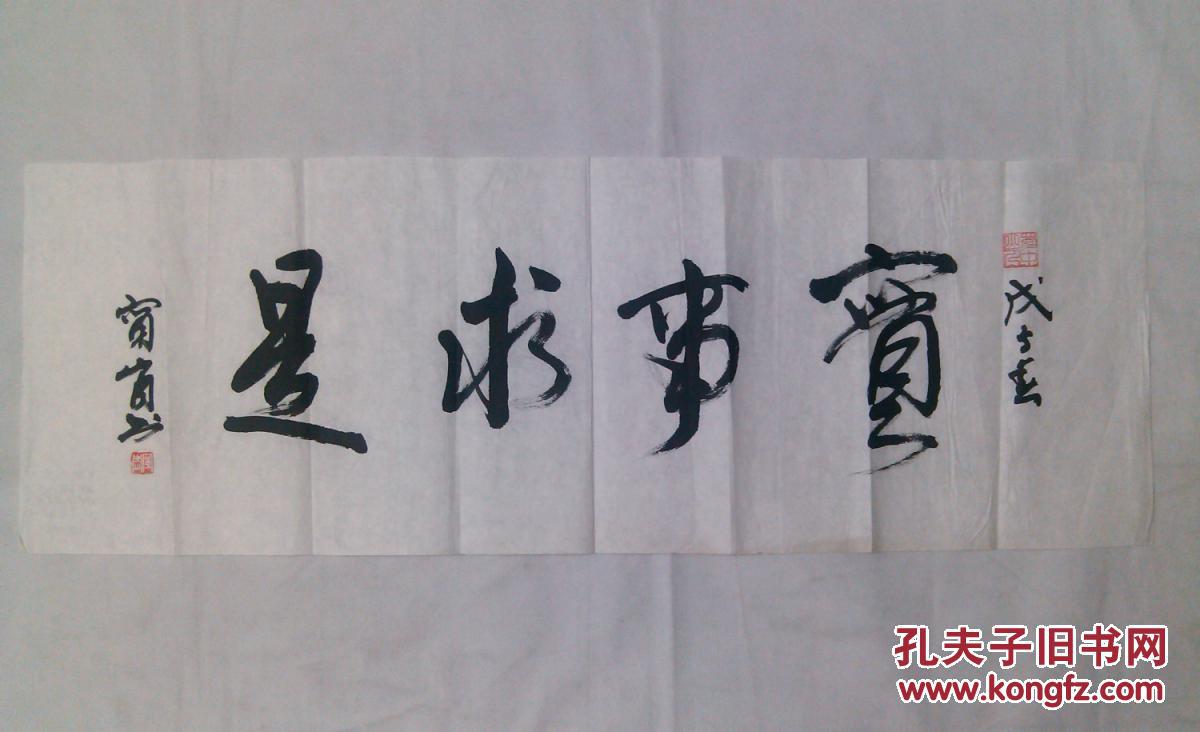 戊子春
實事求是
孔夫子旧书网
www.kongfz.com